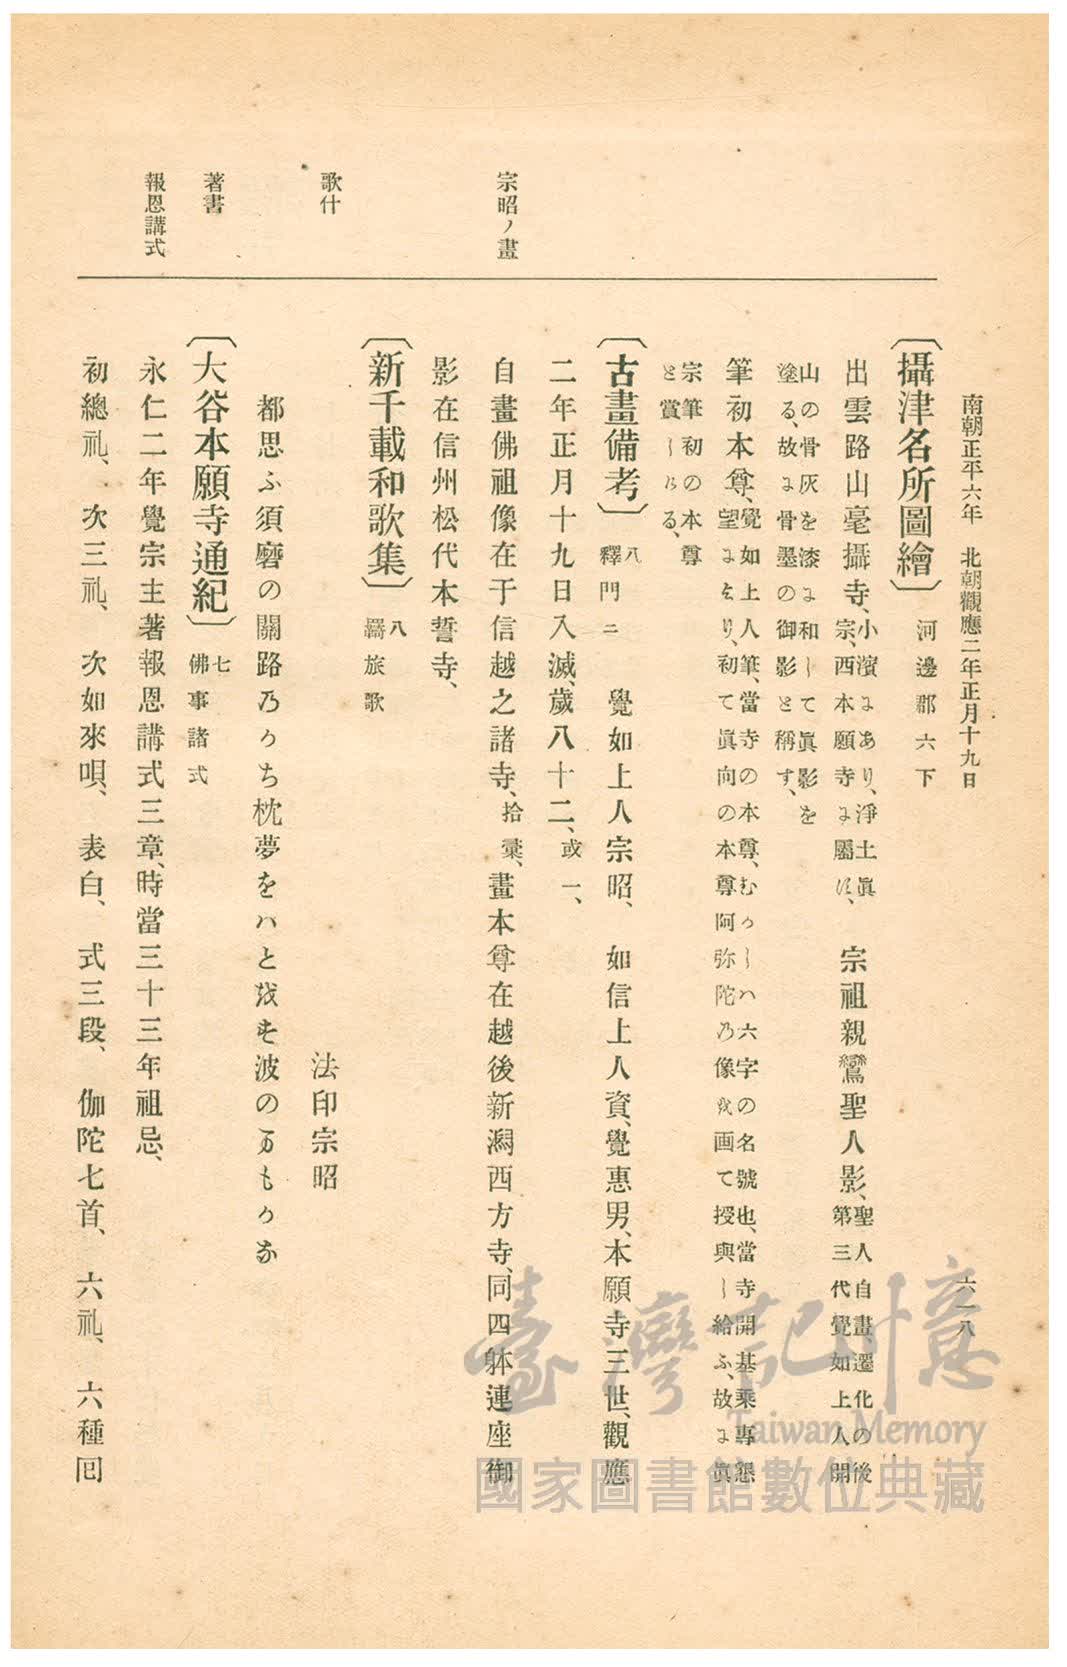 南朝正平六年　北朝觀應二年正月十九日
六一八
宗昭ノ畫
歌什
著書
報恩講式
〔攝津名所圖繪〕河邊郡六下
出雲路山毫攝寺、小濱にあり、淨土眞宗、西本願寺に屬に、宗祖親鸞聖人影、聖人自畫、遷化の後第三代覺如上人開
山の骨灰を漆に和して眞影を塗る、故に骨墨の御影と稱す、
筆初本尊、覺如上人筆、當寺の本尊、むかしハ六字の名號也、當寺開基乘專懇望により、初て眞向の本尊阿弥陀乃像を画て授與し給ふ、故に眞
宗筆初の本尊と賞しける、
〔古畫備考〕八釋門ニ　覺如上人宗昭、　如信上人資、覺惠男、本願寺三世、觀應
二年正月十九日入滅、歲八十二、或一、
自畫佛祖像在于信越之諸寺、拾藁、畫本尊在越後新潟西方寺、同四躰連座御
影在信州松代本誓寺、
〔新千載和歌集〕八羇旅歌
法印宗昭
都思ふ須磨の關路乃かち枕夢をハとをせ波のまもかな
〔大谷本願寺通紀〕七佛事諸式
永仁二年覺宗主著報恩講式三章、時當三十三年祖忌、
初總礼、次三礼、次如來唄、表白、式三段、伽陀七首、六礼、六種回